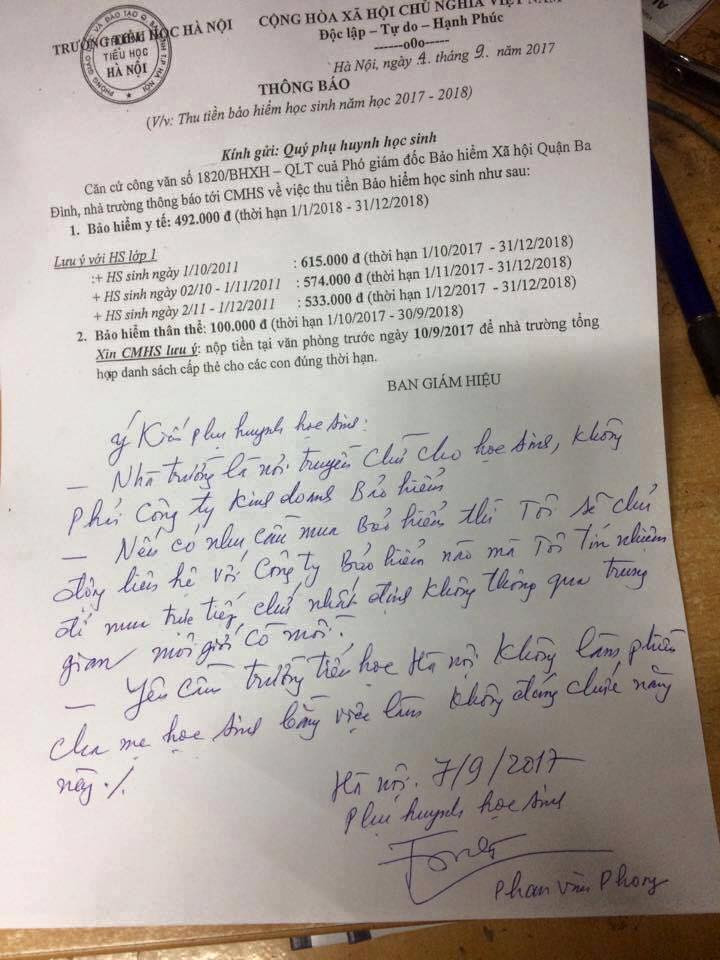 TRƯỜNG TIỂU HỌC HÀ NỘI
CỘNG HÒA XÃ HỘI CHỦ NGHĨA VIỆT NAM
Độc lập – Tự do – Hạnh Phúc
------o0o------
TIỂU HỌC
HÀ NỘI
Hà Nội, ngày 4 tháng 9 năm 2017
THÔNG BÁO
(V/v: Thu tiền bảo hiểm học sinh năm học 2017 - 2018)
Kính gửi: Quý phụ huynh học sinh
Căn cứ công văn số 1820/BHXH – QLT cuả Phó giám đốc Bảo hiểm Xã hội Quận Ba
Đình, nhà trường thông báo tới CMHS về việc thu tiền Bảo hiểm học sinh như sau:
1. Bảo hiểm y tế: 492.000 đ (thời hạn 1/1/2018 - 31/12/2018)
Lưu ý với HS lớp 1
:+ HS sinh ngày 1/10/2011 : 615.000 đ (thời hạn 1/10/2017 - 31/12/2018)
+ HS sinh ngày 02/10 - 1/11/2011 : 574.000 đ (thời hạn 1/11/2017 - 31/12/2018)
+ HS sinh ngày 2/11 - 1/12/2011 : 533.000 đ (thời hạn 1/12/2017 - 31/12/2018)
2. Bảo hiểm thân thể: 100.000 đ (thời hạn 1/10/2017 - 30/9/2018)
Xin CMHS lưu ý: nộp tiền tại văn phòng trước ngày 10/9/2017 để nhà trường tổng
hợp danh sách cấp thẻ cho các con đúng thời hạn.
BAN GIÁM HIỆU
Ý Kiến phụ huynh học sinh:
— Nhà trường là nơi truyền chữ cho học sinh, không
phải Công ty kinh doanh Bảo hiểm
— Nếu có nhu cầu mua Bảo hiểm thì Tôi sẽ chủ
động liên hệ với Công ty Bảo hiểm nào mà Tôi tín nhiệm
để mua trực tiếp chứ nhất định không thông qua trung
gian môi giới cò mồi.
— Yêu cầu trường tiểu học Hà Nội không làm phiền
cha mẹ học sinh bằng việc làm không đúng chức năng
này./.
Hà nội. 7/9/2017
Phụ huynh học sinh
Phan Văn Phong